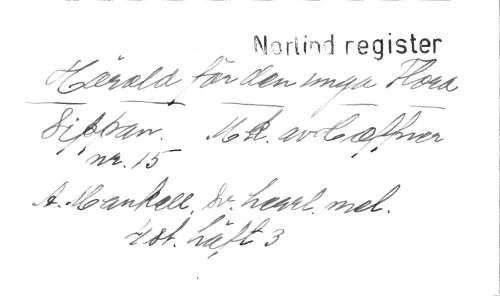 Norlind register
Härold för den unga Flora
Sippan. Mk. av Hæffner
nr. 15
A. Mankell, Sv. hegel. mel.
4 st. häft 3